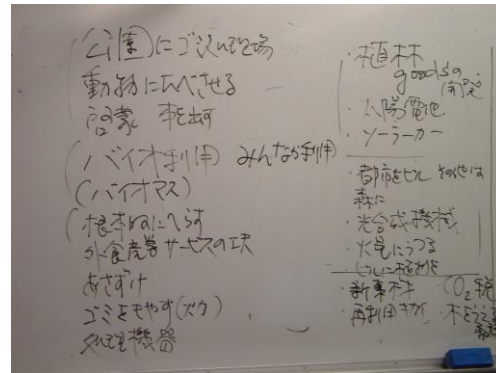 公園にゴミ処理場
動物にたべさせる
啓蒙 本を出す
バイオ利用 みんなが利用
(バイオマス)
根本的にへらす
外食産業サービスの工夫
あさずけ
ゴミをもやす(ズカ)
処理機器
・植林
goodsの開発
・太陽電池
・ソーラーカー
・都市をビル その他は
森に
・光合成機械
・火星にうつる
・ビルに植物を
・新素材 CO2税
・再利用 ・木をうえる